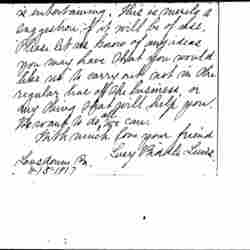 is entertaining. This is merely a
suggestion, if it will be of use.
Please let me know of any ideas
you may have that you would
like us to carry out not in the
regular line of the business, or
any thing that will help you.
We want to do all we can.
With much love your friend
Lucy Biddle Lewis.
Lansdowne, Pa.
8-15-1917